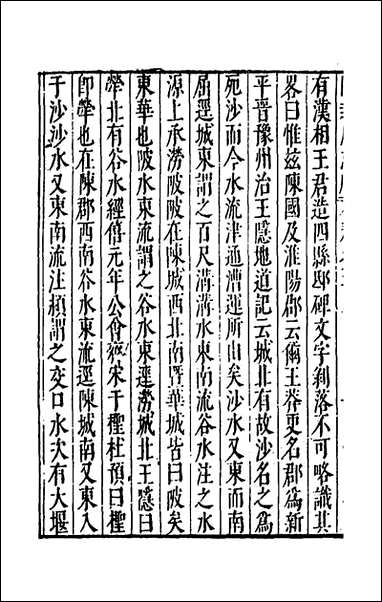 有漢相王君造四縣邸碑文字剥落不可略識其
畧曰惟兹陳國及淮陽郡云爾王莽更名郡爲新
平晉豫州治王隱地道記云城北有故沙名之爲
死沙而今水流津通漕運所由矣沙水又東而南
屈逕城東謂之百尺溝溝水東南流谷水注之水
源上承澇陂陂在陳城西北南暨犖城皆曰陂矣
東華也陂水東流謂之谷水東逕澇城北王隱曰
犖北有谷水經僖元年公會齊宋于檉杜預曰檉
卽犖也在陳郡西南谷水東流逕陳城南又東入
于沙沙水又東南流注頴謂之交口水次有大堰